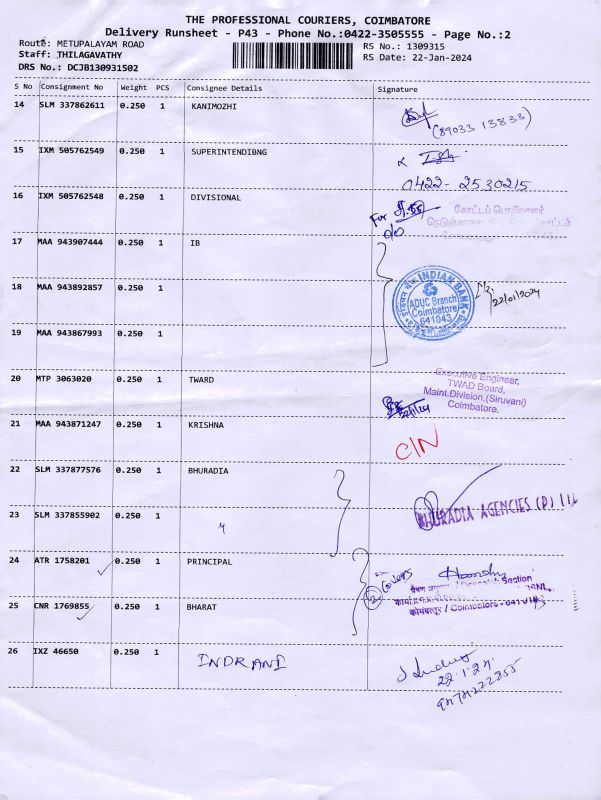 THE PROFESSIONAL COURIERS, COIMBATORE
Delivery Runsheet - P43 - Phone No.:0422-3505555 - Page No.:2
Route: METUPALAYAM ROAD RS No.: 1309315
Staff: THILAGAVATHY RS Date: 22-Jan-2024
DRS No.: DCJB130931502
S No Consignment No Weight PCS Consignee Details Signature
14 SLM 337862611 0.250 1 KANIMOZHI
(89033 13833)
15 IXM 505762549 0.250 1 SUPERINTENDIBNG
0422-2530215
16 IXM 505762548 0.250 1 DIVISIONAL
For
கோட்டப் பொறியாளர்
17 MAA 943907444 0.250 1 IB
18 MAA 943892857 0.250 1
INDIAN BANK
ADUC Branch
Coimbatore
641043
22/01/2024
19 MAA 943867993 0.250 1
20 MTP 3063020 0.250 1 TWARD
Executive Engineer,
TWAD Board,
Maint.Division,(Siruvani)
Coimbatore.
21 MAA 943871247 0.250 1 KRISHNA
C/N
22 SLM 337877576 0.250 1 BHURADIA
23 SLM 337855902 0.250 1
BHURADIA AGENCIES (P)
24 ATR 1758201 0.250 1 PRINCIPAL
2 Covers
Despatch Section
25 CNR 1769855 0.250 1 BHARAT
कोयंबत्तूर / Coimbatore - 641
26 IXZ 46650 0.250 1 INDRANI
22.1.24